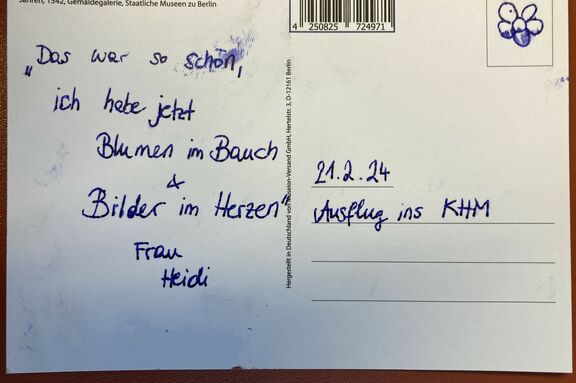 Jahren, 1542, Gemäldegalerie, Staatliche Museen zu Berlin
4 250825 724971
„Das war so schön,
ich habe jetzt
Blumen im Bauch
&
Bilder im Herzen“
Frau
Heidi
Hergestellt in Deutschland von Museion-Versand GmbH, Hertelstr. 3, D-12161 Berlin
21.2.24
Ausflug ins KHM